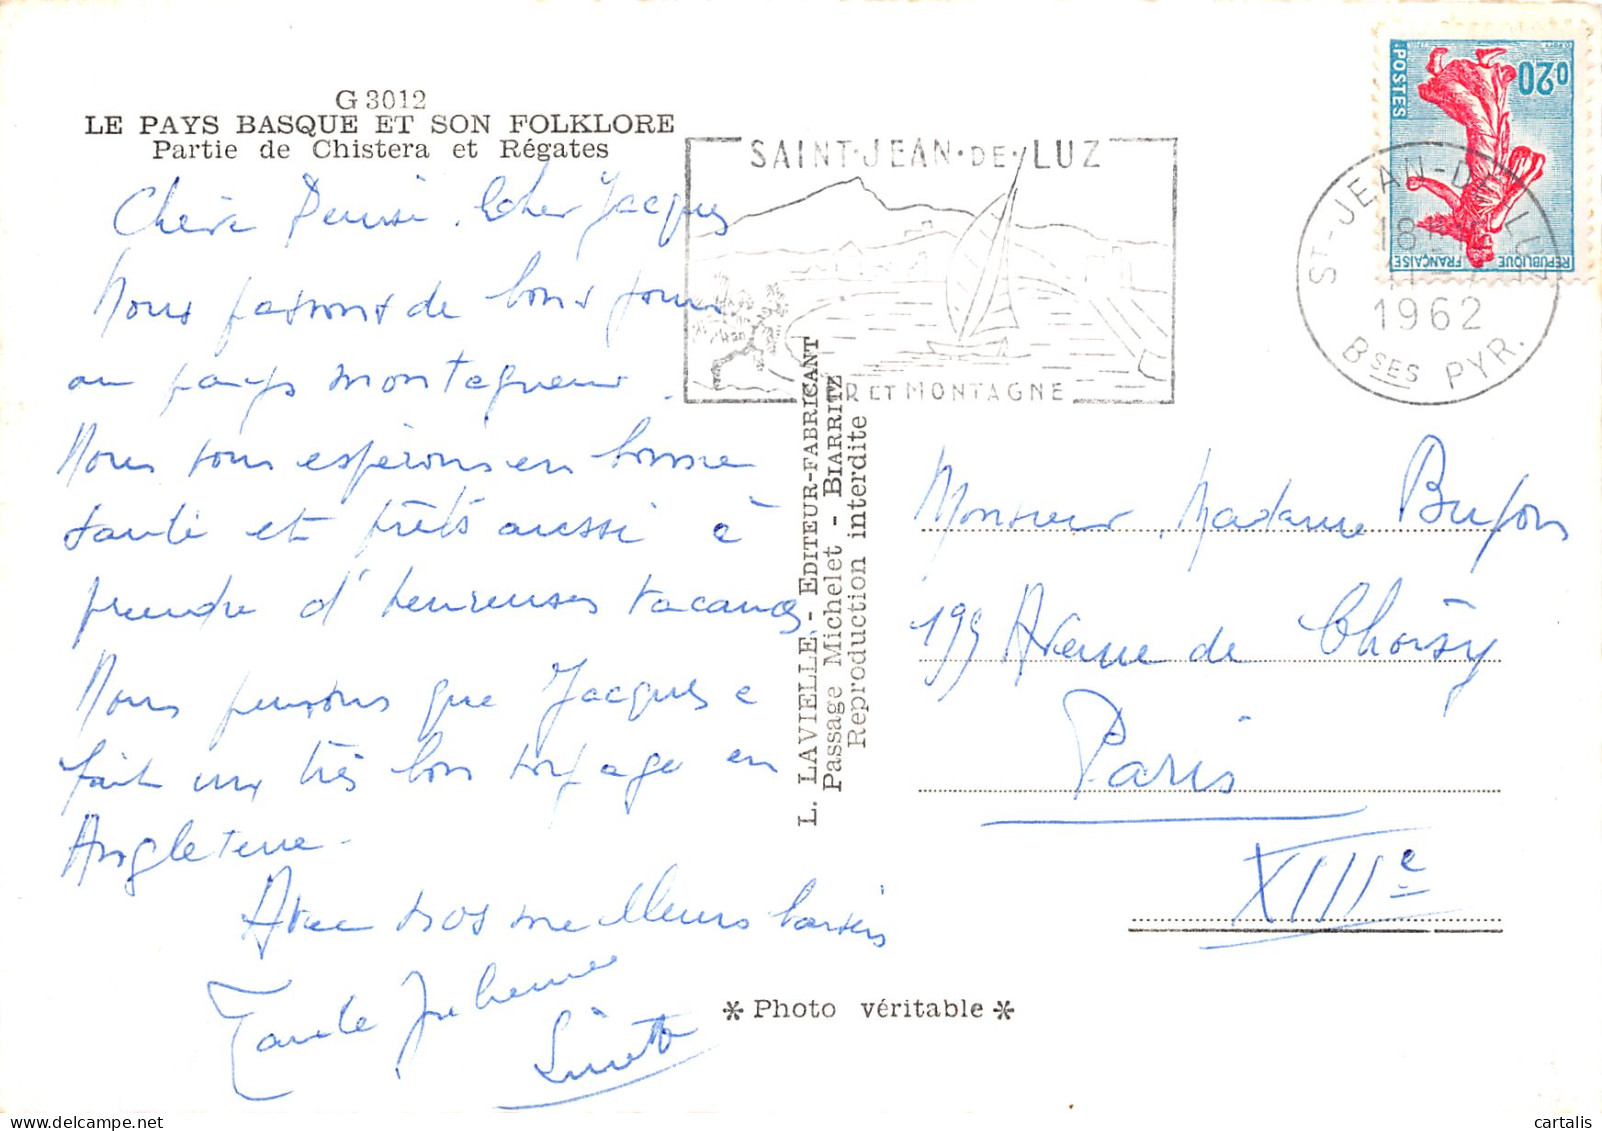 G 3012
LE PAYS BASQUE ET SON FOLKLORE
Partie de Chistera et Régates
Chère Denise, cher Jacques
Nous passons de bons jours
au pays montagneux.
Nous vous espérons en bonne
santé et prêts aussi à
prendre d'heureuses vacances
Nous pensons que Jacques a
fait un très bon voyage en
Angleterre.
Avec nos meilleurs baisers
Tante
L. LAVIELLE - EDITEUR-FABRICANT
Passage Michelet - BIARRITZ
Reproduction interdite
SAINT-JEAN-DE-LUZ
ET MONTAGNE
POSTES
0,20
REPUBLIQUE FRANÇAISE
ST-JEAN-DE-LUZ
18H
1962
BSES PYR.
Monsieur, Madame Bufon
199 Avenue de Choisy
Paris
XIIIe
* Photo véritable *
cartalis